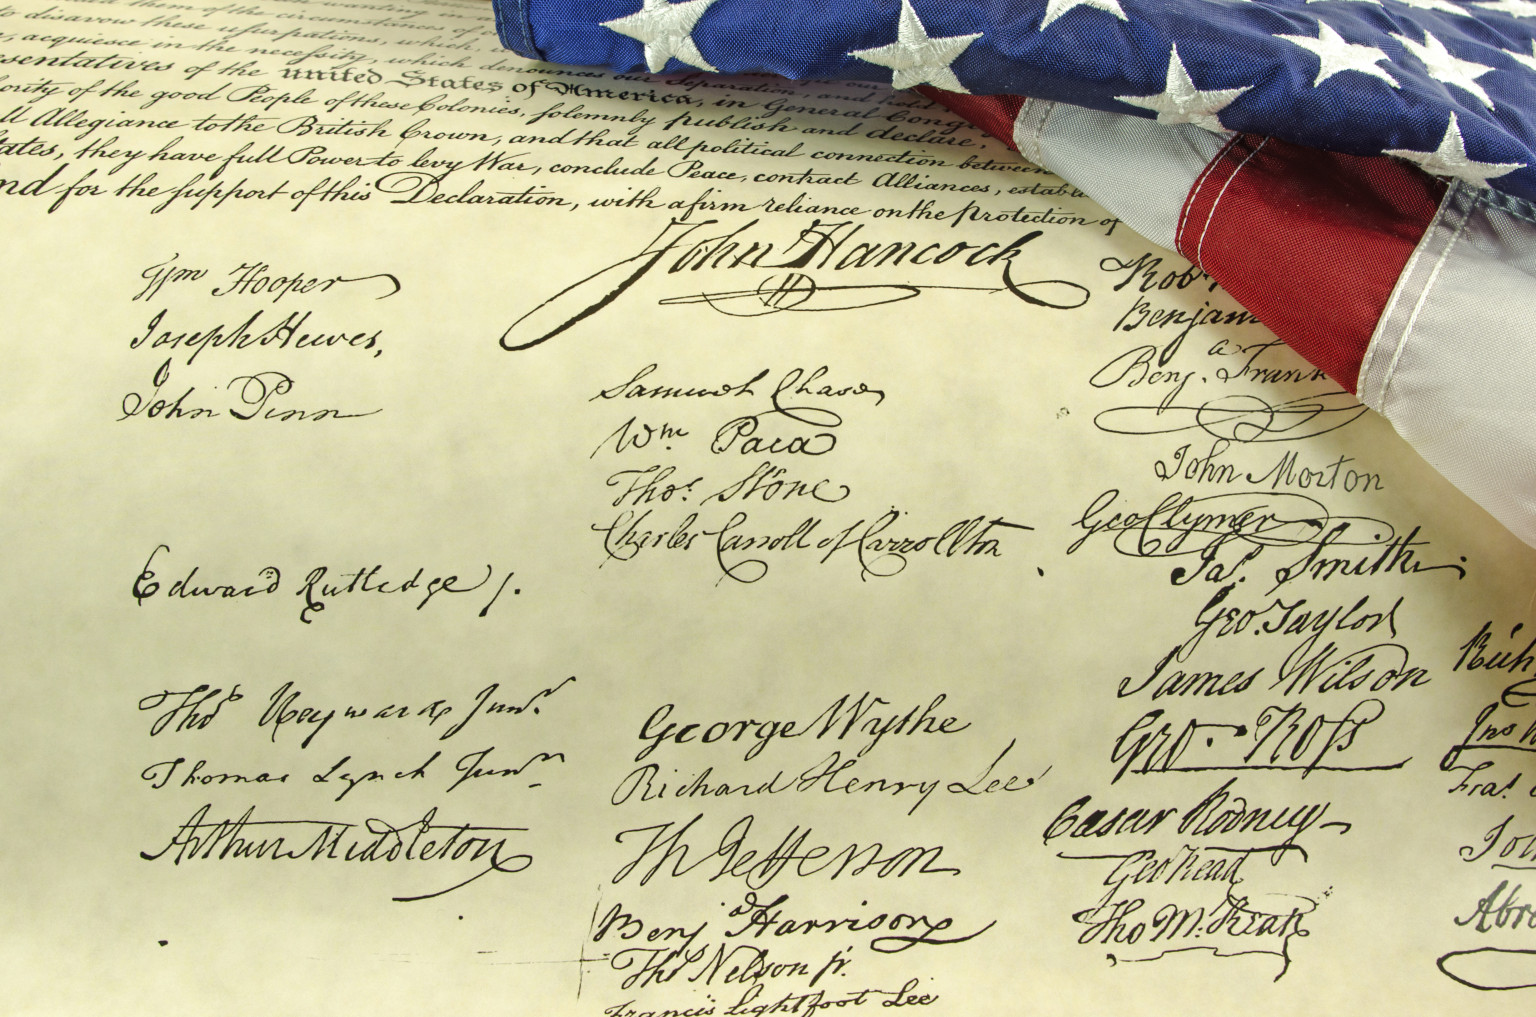 to disavow these usurpations, which,
acquiesce in the necessity, which denounces our Separation, and hold
sentatives of the united States of America, in General Cong
ority of the good People of these Colonies, solemnly publish and declare,
ll Allegiance to the British Crown, and that all political connection between
tates, they have full Power to levy War, conclude Peace, contract Alliances, establ
nd for the support of this Declaration, with a firm reliance on the protection of
John Hancock
Wm Hooper
Joseph Hewes,
John Penn
Edward Rutledge /.
Thos Heyward Junr.
Thomas Lynch Junr.
Arthur Middleton
Samuel Chase
Wm. Paca
Thos. Stone
Charles Carroll of Carrollton
George Wythe
Richard Henry Lee
Th Jefferson
Benja Harrison
Thos Nelson jr.
Francis Lightfoot Lee
Rob
Benjam
Benja. Frank
John Morton
Geo Clymer
Jas. Smith.
Geo. Taylor
James Wilson
Geo. Ross
Caesar Rodney
Geo Read
Tho M:Kean
Rich
Jno W
Fras.
Joh
Abra